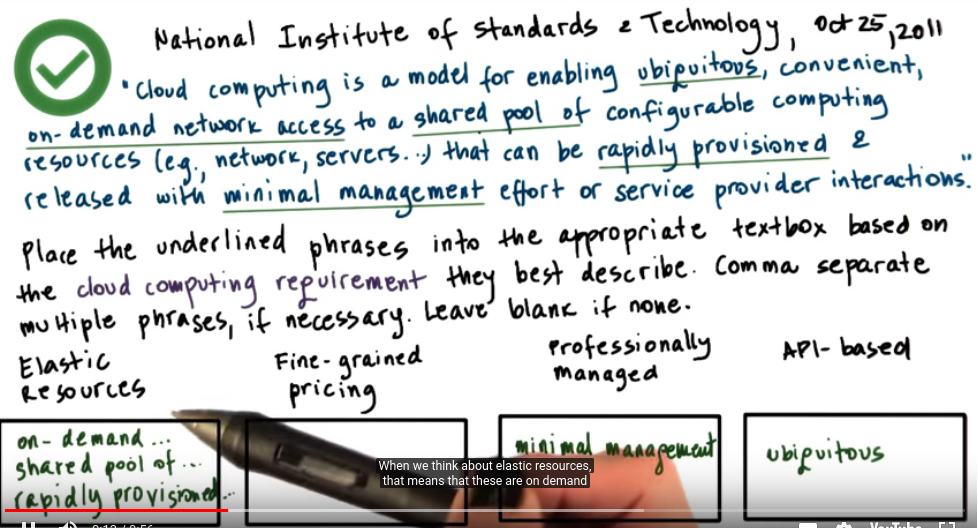 National Institute of Standards & Technology, Oct 25, 2011
"Cloud computing is a model for enabling ubiquitous, convenient,
on-demand network access to a shared pool of configurable computing
resources (e.g., network, servers...) that can be rapidly provisioned &
released with minimal management effort or service provider interactions."
Place the underlined phrases into the appropriate textbox based on
the cloud computing requirement they best describe. Comma separate
multiple phrases, if necessary. Leave blank if none.
Elastic
Resources
Fine-grained
pricing
Professionally
managed
API-based
on-demand...
shared pool of...
rapidly provisioned...
minimal management
ubiquitous
When we think about elastic resources,
that means that these are on demand
YouTube